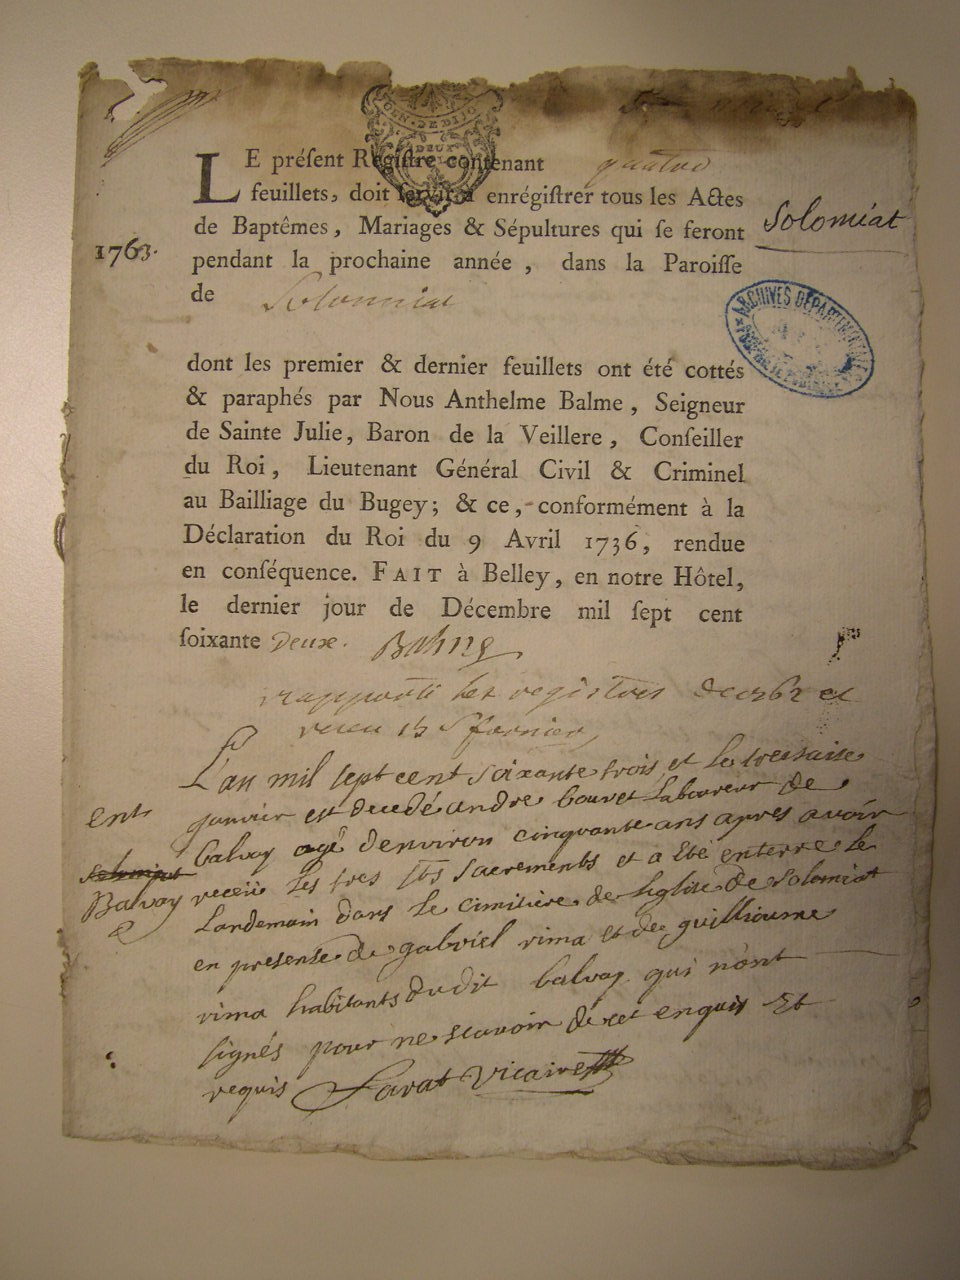 GEN. DE DIJO
DEUX
LE préſent Regiſtre contenant quatre
feuillets, doit ſervir à enrégiſtrer tous les Actes
de Baptêmes, Mariages & Sépultures qui ſe feront
Solomiat
1763.
pendant la prochaine année, dans la Paroiſſe
de Solomiat
ARCHIVES DÉPARTEMENTALES
dont les premier & dernier feuillets ont été cottés
& paraphés par Nous Anthelme Balme, Seigneur
de Sainte Julie, Baron de la Veillere, Conſeiller
du Roi, Lieutenant Général Civil & Criminel
au Bailliage du Bugey; & ce, conformément à la
Déclaration du Roi du 9 Avril 1736, rendue
en conſéquence. FAIT à Belley, en notre Hôtel,
le dernier jour de Décembre mil ſept cent
ſoixante Deux. Balme
rapporté les registres de 1762 et
receu 15 s
L'an mil sept cent soixante trois et le treisaise
janvier est decedé andre bouvet Laboureur de
ent
balvay agé denviron cinquante ans apres avoir
solomiat
Balvay
receü les tres sts sacrements et a eté enterre le
Landemain dans le cimitiere de leglise de solomiat
en presense de gabriel rima et de guillioume
rima habitants dudit balvay qui n'ont
signés pour ne scavoir de cet enquis Et
requis Savat Vicaire